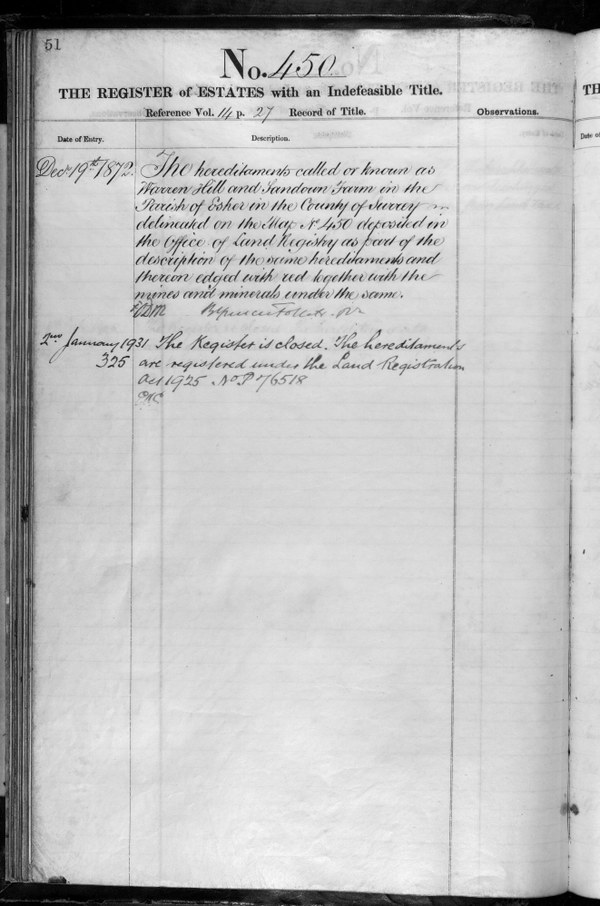 51
No. 450
THE REGISTER of ESTATES with an Indefeasible Title.
Reference Vol. 14 p. 27 Record of Title.
Observations.
Date of Entry.
Description.
Decr 19th 1872.
The hereditaments called or known as
Warren Hill and Sandown Farm in the
Parish of Esher in the County of Surrey
delineated on the Map No 450 deposited in
the Office of Land Registry as part of the
description of the same hereditaments and
thereon edged with red together with the
mines and minerals under the same.
2nd January 1931 The Register is closed. The hereditaments
325 are registered under the Land Registration
Act 1925 No P 76518
TH
Date of